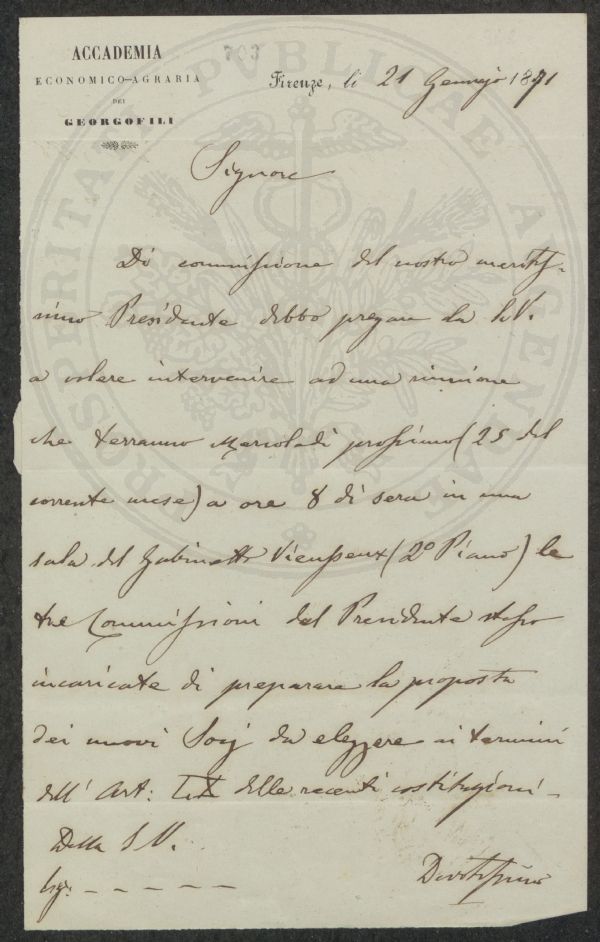 ACCADEMIA
ECONOMICO-AGRARIA
DEI
GEORGOFILI
703
Firenze, li 21 Gennajo 1871
PROSPERITATI PVBLICAE AVGENDAE
Signore
Di commissione del nostro meritis-
simo Presidente debbo pregare la S.V.
a volere intervenire ad una riunione
che terranno Mercoledì prossimo (25 del
corrente mese) a ore 8 di sera in una
sala del Gabinetto Vieusseux (2º Piano) le
tre Commissioni dal Presidente stesso
incaricate di preparare la proposta
dei nuovi Socj da eleggere ai termini
dell' Art: delle recenti costituzioni -
Della S.V.
Devotissimo